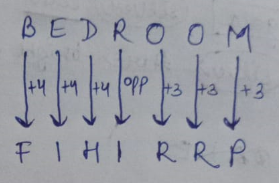 B E D R O O M
+4 +4 +4 opp +3 +3 +3
F I H I R R P